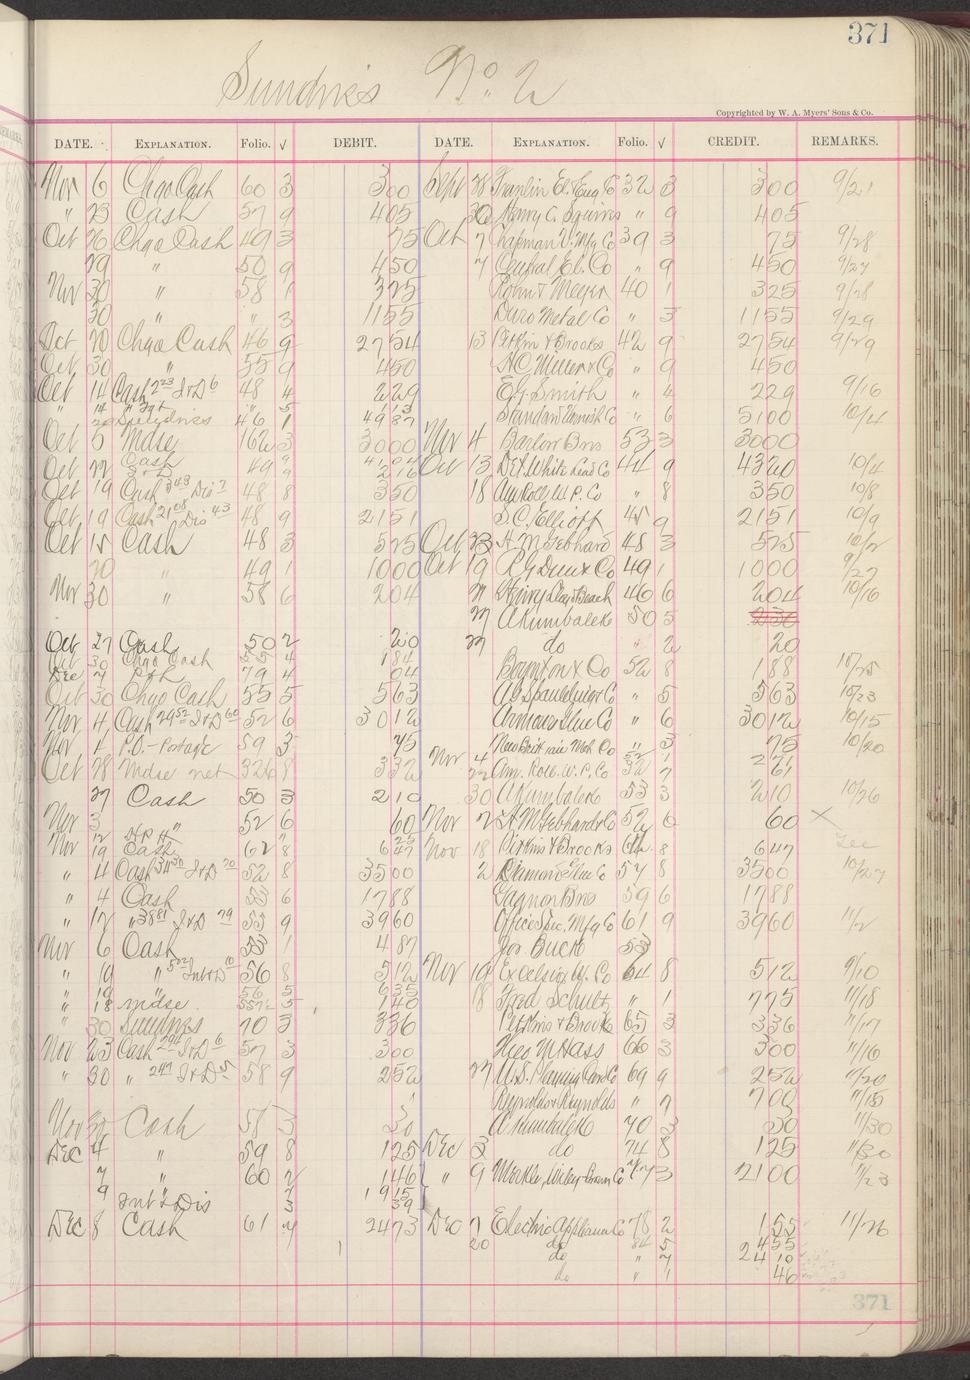 371
Sundries No. 2
Copyrighted by W. A. Myers' Sons & Co.
DATE. EXPLANATION. Folio. √ DEBIT. DATE. EXPLANATION. Folio. √ CREDIT. REMARKS.
Nov 6 Chgo Cash 60 3 300 Sept 28 Franklin El. & Eng Co 32 3 300 9/21
" 23 Cash 57 9 405 30 Henry C. Squires " 9 405
Oct 26 Chgo Cash 49 3 75 Oct 7 Chapman V. Mfg Co 39 3 75 9/28
29 " 50 9 450 7 Central El. Co " 9 450 9/27
Nov 30 " 58 1 325 Meyer 40 1 325 9/28
30 " " 3 1155 Duro Metal Co " 3 1155 9/29
Oct 20 Chgo Cash 46 9 2754 13 Perkin & Brooks 42 9 2754 9/29
Oct 30 " 55 9 450 H.C. Miller & Co " 9 450
Oct 14 Cash 223 I&D 6 48 4 229 E.G. Smith " 4 229 9/16
" 14 " 5 113
Sundries 46 1 4987 Standard Varnish Co " 6 5100 10/4
Oct 5 Mdse 162 3 3000 Nov 4 Barlow Bros 53 3 3000
Oct 22 Cash 49 9 Oct 13 White Lead Co 44 9 4320 10/4
Oct 19 Cash 343 Dis 7 48 8 350 18 Am Roll W. P. Co " 8 350 10/8
Oct 19 Cash 2108 Dis 43 48 9 2151 S.C. Elliott 45 9 2151 10/9
Oct 15 Cash 48 3 525 Oct 23 H. M Gebhard 48 3 525 10/2
20 " 49 1 1000 Oct 19 R G Dun & Co 49 1 1000 9/27
Nov 30 " 58 6 204 Beach 46 6 204 10/16
27 A Kumbalek 50 5 230
Oct 27 Cash 50 2 20 27 do " 2 20
Oct 30 Chgo Cash 55 4 184
Dec 7 79 4 04 Boynton & Co 52 8 188 10/25
Oct 30 Chgo Cash 55 5 563 A G Spaulding & Co " 5 563 10/23
Nov 4 Cash 2952 I&D 60 52 6 3012 Armour Glue Co " 6 3012 10/15
Nov 4 P.O. - Postage 59 3 75 New Britain Mch Co " 3 75 10/20
Oct 28 Mdse net 326 8 332 Nov 4 52 1 271
22 Am. Roll. W. P. Co 32 7 61
27 Cash 50 3 210 30 A Kumbalek 53 3 210 10/26
Nov 3 " 52 6 60 Nov 2 H M Gebhard & Co 52 6 60 ×
Nov 19 Cash 62 8 647 Nov 18 Perkins & Brooks 64 8 647
" 4 Cash 3430 I&D 70 52 8 3500 2 Diamond Glue Co 57 8 3500 10/27
" 4 Cash 53 6 1788 Gagnon Bros 59 6 1788
" 12 " 3881 I&D 79 53 9 3960 Office Spc. Mfg Co 61 9 3960 11/2
Nov 6 Cash 53 1 487 Jos Buck 53
" 19 " 502 Int & D 10 56 8 512 Nov 19 Excelsior W. Co 64 8 512 9/10
" 19 " 56 5 635
" 18 mdse 5 140 18 Fred Schultz " 1 775 11/18
" 30 Sundries 70 3 336 Perkins & Brooks 65 3 336 11/17
Nov 23 Cash 294 I&D 6 57 3 300 Hass 66 3 300 11/16
" 30 " 247 I&D 5 58 9 252 27 U.S. Playing Card Co 69 9 252 11/20
Reynolds & Reynolds " 7 700 11/15
Nov 30 Cash 58 3 30 A Kumbalek 70 3 30 11/30
Dec 4 " 59 8 125 Dec 3 do 74 8 125 11/30
7 " 60 2 146 " 9 Co 77 3 2100 11/23
9 7 1915
Int & Dis 3 39
Dec 8 Cash 61 7 2473 Dec 7 Electric Appliance Co 78 2 155 11/26
20 do 84 5 455
do " 7 2410
do " 1 46
371